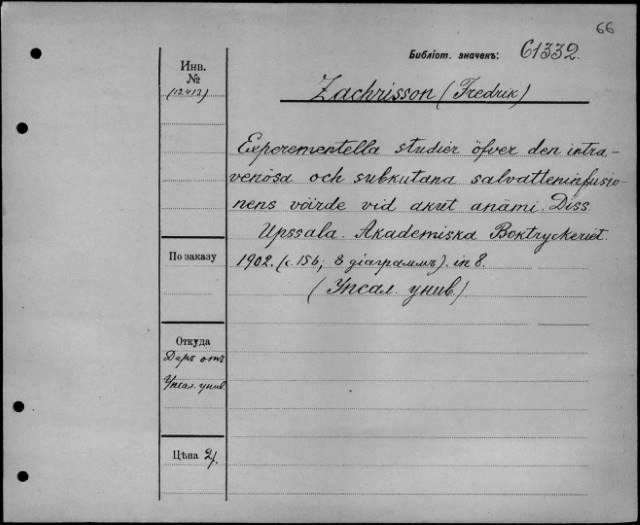 66
Библіот. значекъ: 61332.
Инв.
№
(12412)
Zachrisson (Fredrik)
Experementella studier öfver den intra-
venösa och subkutana salvatteninfusio-
nens värde vid akut anämi. Diss.
Upssala. Akademiska Boktryckeriet.
По заказу
1902. (с. 156; 8 діаграммъ). in 8.
(Упсал. унив.)
Откуда
Даръ отъ
Упсал. унив.
Цѣна 2